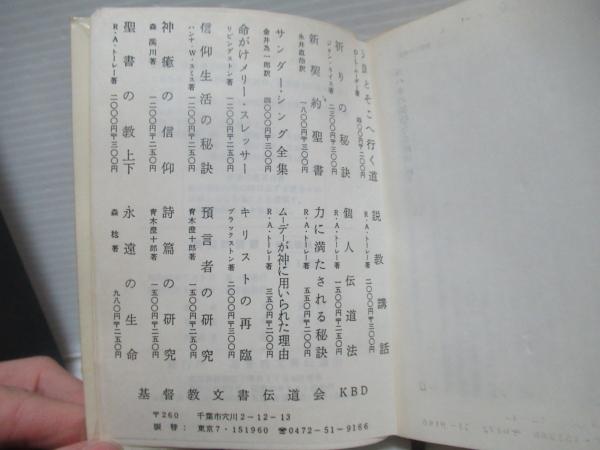 天国とそこへ行く道
D・L・ムーデー著 四〇〇円〒二〇〇円
祈りの秘訣
二三〇〇円〒三〇〇円
新契約聖書
永井直治訳 一八〇〇円〒三〇〇円
サンダー・シング全集
金井為一郎訳 四〇〇〇円〒三〇〇円
命がけメリー・スレッサー
リビングストン著 二〇〇〇円〒二五〇円
信仰生活の秘訣
ハンナ・W・スミス著 二〇〇〇円〒二五〇円
神癒の信仰
森溪川著 一二〇〇円〒二五〇円
聖書の教上下
R・A・トーレー著 二〇〇〇円〒三〇〇円
説教講話
R・A・トーレー著 二〇〇〇円〒三〇〇円
個人伝道法
R・A・トーレー著 一五〇〇円〒二五〇円
力に満たされる秘訣
R・A・トーレー著 五五〇円〒二〇〇円
ムーデーが神に用いられた理由
R・A・トーレー著 三五〇円〒二〇〇円
キリストの再臨
ブラックストン著 二〇〇〇円〒三〇〇円
預言者の研究
青木澄十郎著 一五〇〇円〒二五〇円
詩篇の研究
青木澄十郎著 一五〇〇円〒二五〇円
永遠の生命
森稔著 九八〇円〒二五〇円
基督教文書伝道会 KBD
〒260 千葉市穴川2-12-13
振替:東京7・151960 ☎0472-51-9166